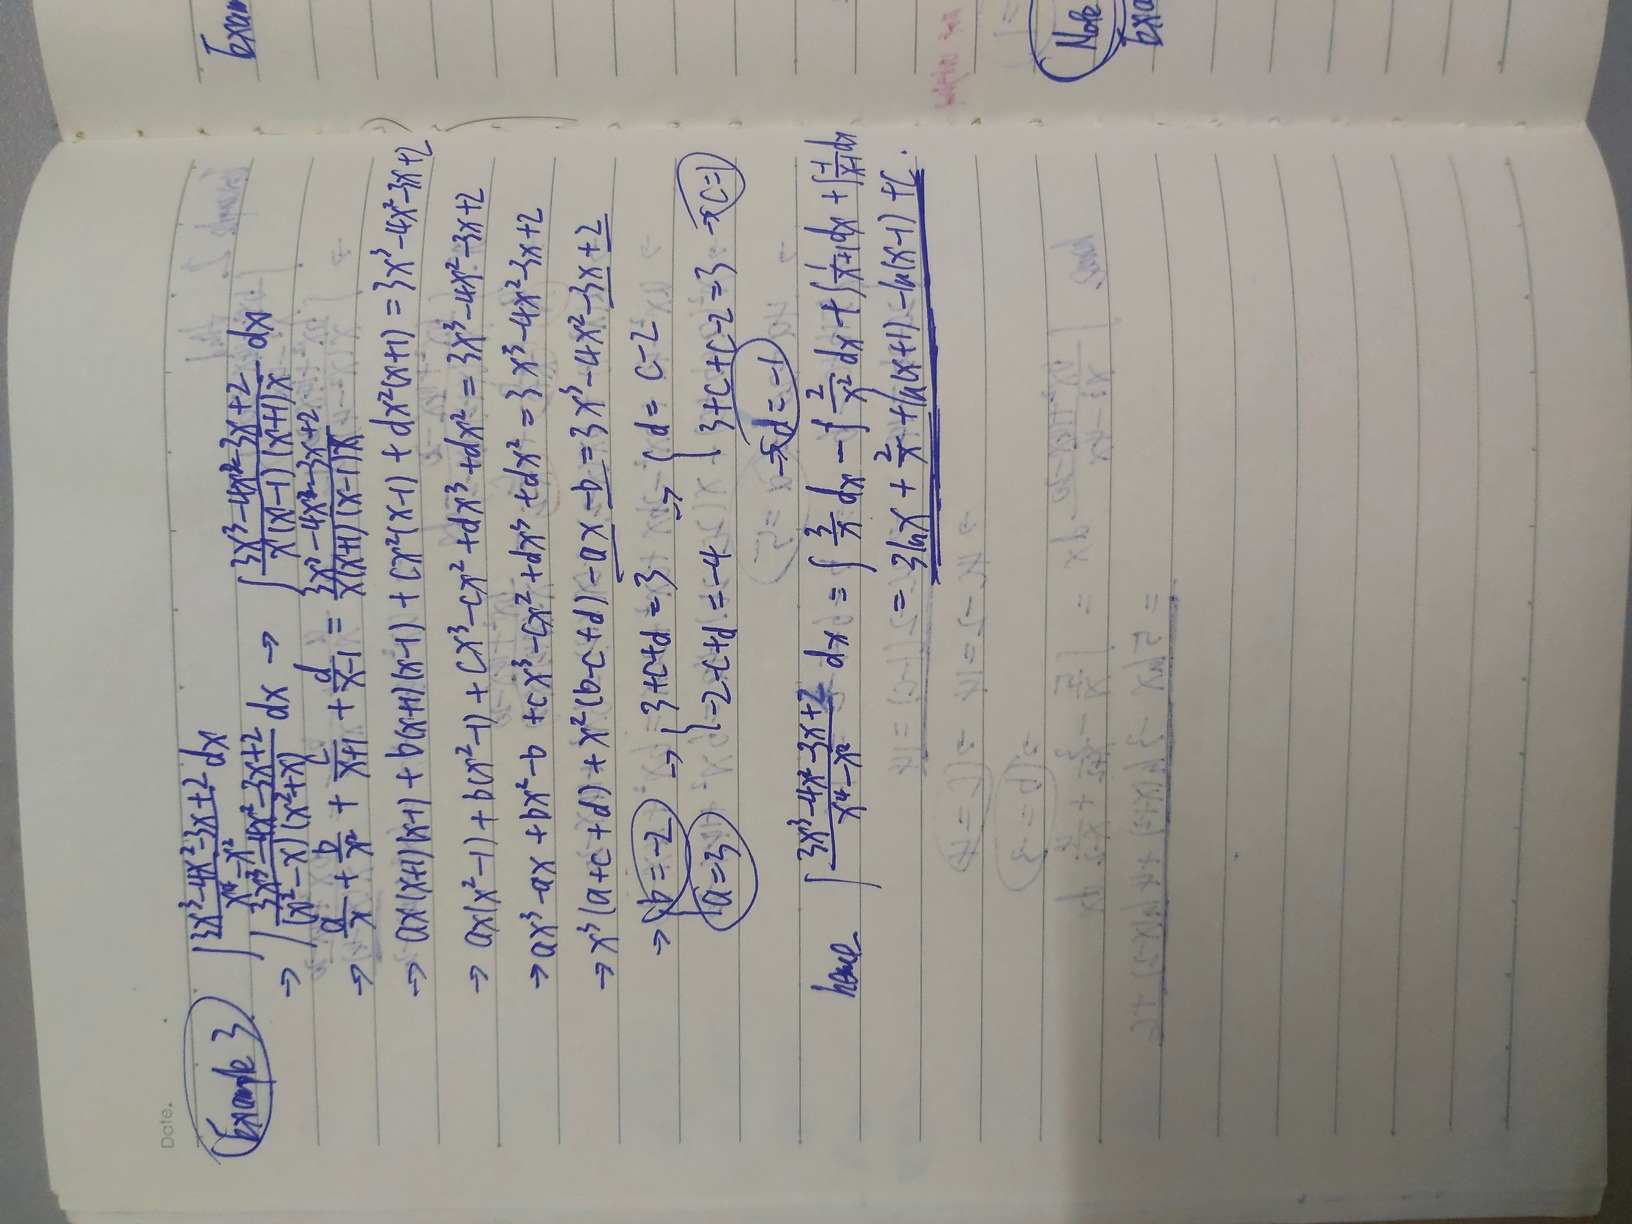 Date.
Example 3 ∫ (3x³-4x²-3x+2)/(x⁴-x²) dx
→ ∫ (3x³-4x²-3x+2)/((x²-x)(x²+x)) dx → ∫ (3x³-4x²-3x+2)/(x(x-1)(x+1)x) dx
→ a/x + b/x² + c/(x+1) + d/(x-1) = (3x³-4x²-3x+2)/(x(x+1)(x-1)x)
→ ax(x+1)(x-1) + b(x+1)(x-1) + cx²(x-1) + dx²(x+1) = 3x³-4x²-3x+2
→ ax(x²-1) + b(x²-1) + cx³-cx²+dx³+dx² = 3x³-4x²-3x+2
→ ax³-ax+bx²-b+cx³-cx²+dx³+dx² = 3x³-4x²-3x+2
→ x³(a+c+d) + x²(b-c+d) -ax -b = 3x³-4x²-3x+2
→ { b=-2 → { 3+c+d=3 → { d=c-2
a=3 -2-c+d=-4 3+c+c-2=3 → c=1
→ d=-1
hence ∫ (3x³-4x²-3x+2)/(x⁴-x²) dx = ∫ 3/x dx - ∫ 2/x² dx + ∫ 1/(x+1) dx + ∫ -1/(x-1) dx
= 3lnx + 2/x + ln(x+1) - ln(x-1) + C.
Exam
Note
Exa